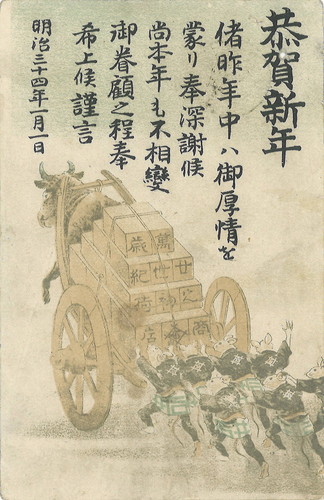 恭賀新年
偖昨年中ハ御厚情を
蒙り奉深謝候
尚本年も不相變
御眷顧之程奉
希上候謹言
明治三十四年一月一日
萬歳
廿世紀
之初荷
商店